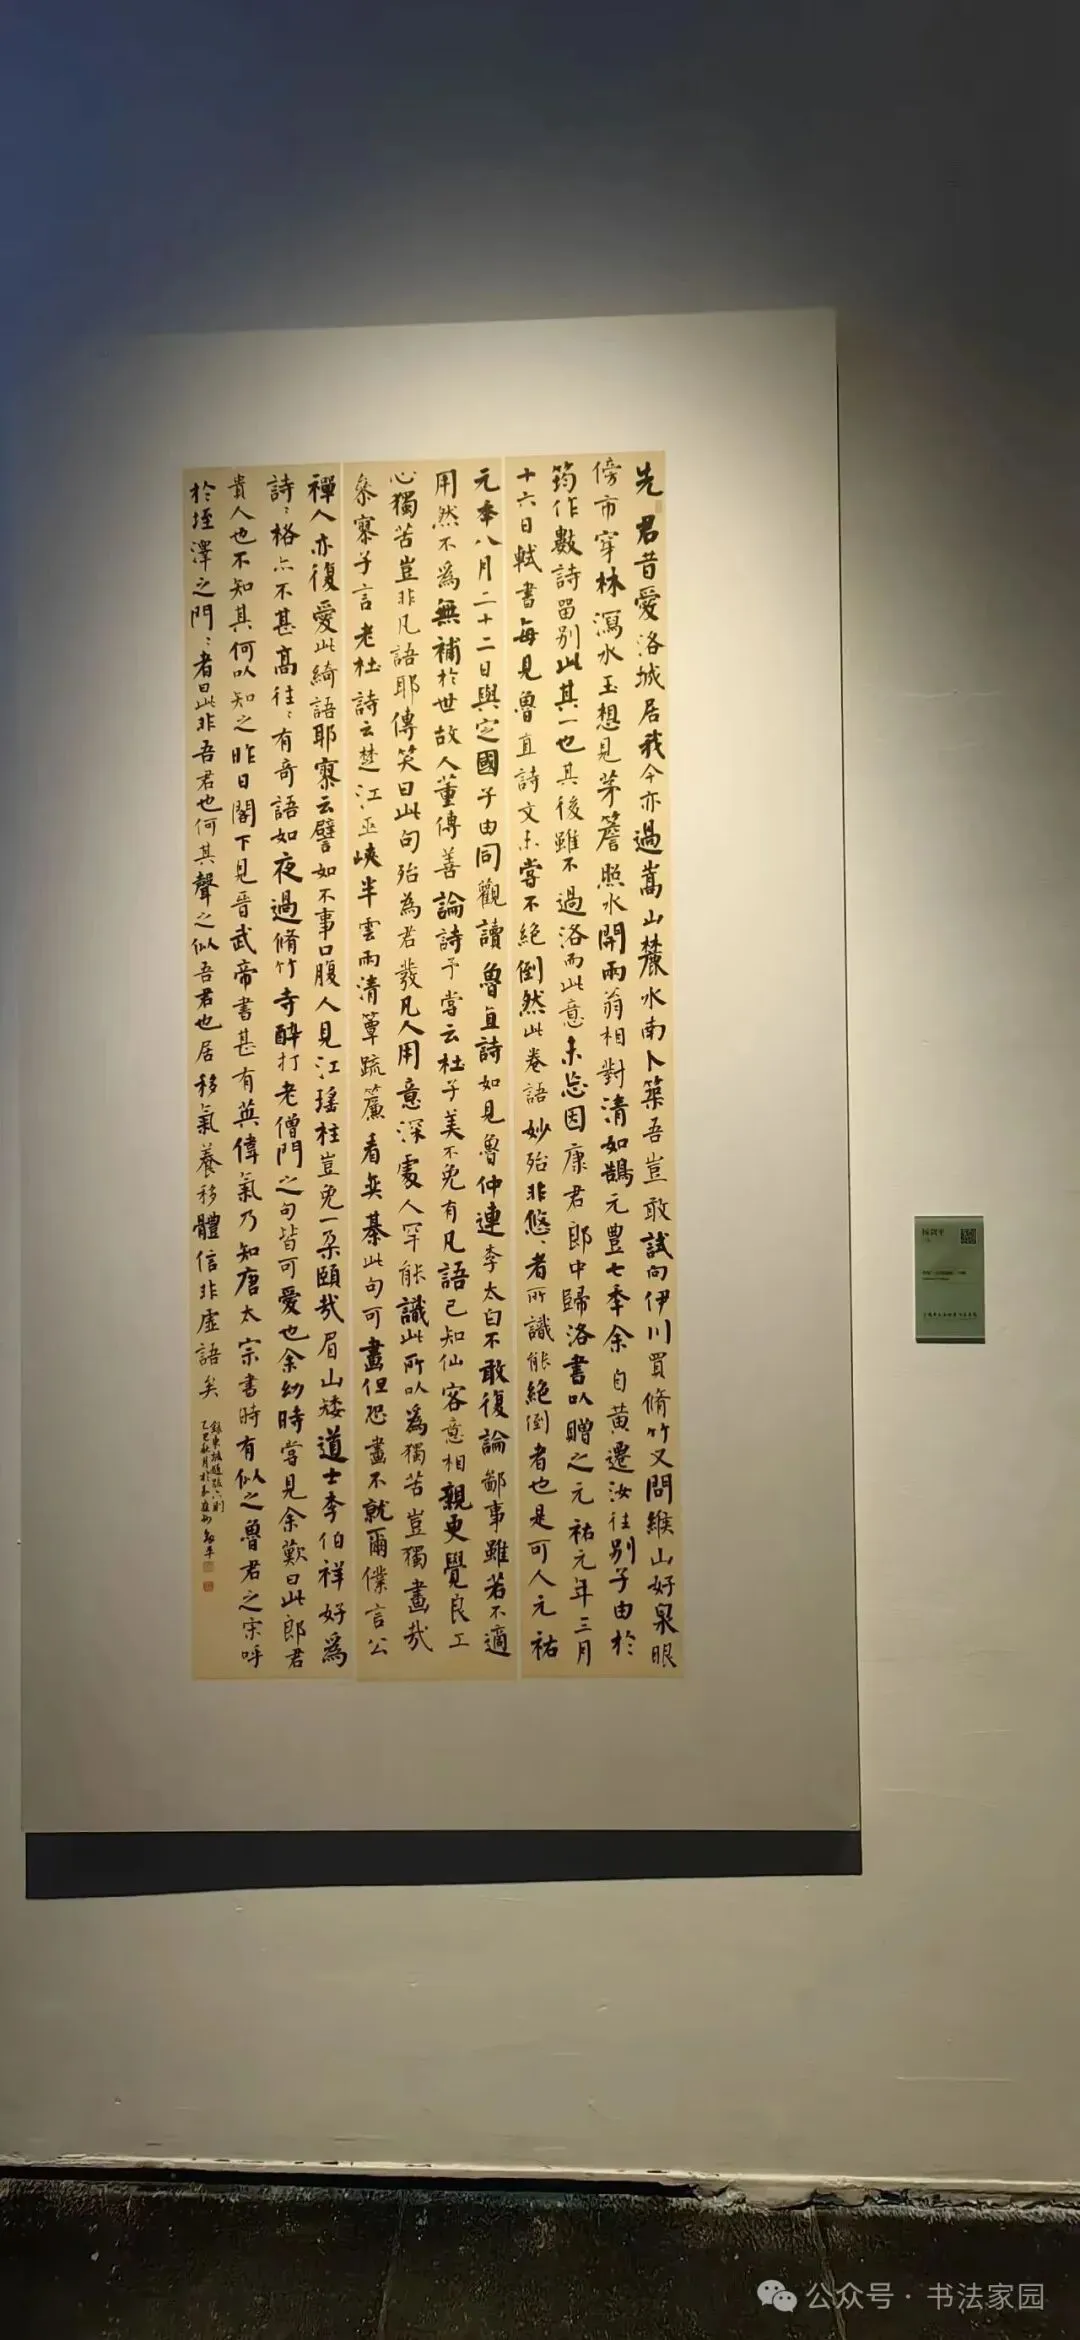 先君昔愛洛城居我今亦過嵩山麓水南卜築吾豈敢試向伊川買脩竹又問緱山好泉眼
傍市穿林瀉水玉想見茅簷照水開兩翁相對清如鵠元豊七年余自黃遷汝往別子由於
筠作數詩留別此其一也其後雖不過洛而此意未忘因康君郎中歸洛書以贈之元祐元年三月
十六日軾書每見魯直詩文未嘗不絕倒然此卷語妙殆非悠、者所識能絕倒者也是可人元祐
元年八月二十二日與定國子由同觀讀魯直詩如見魯仲連李太白不敢復論鄙事雖若不適
用然不為無補於世故人董傳善論詩予嘗云杜子美不免有凡語已知仙客意相親更覺良工
心獨苦豈非凡語耶傳笑曰此句殆為君發凡人用意深處人罕能識此所以為獨苦豈獨畫哉
參寥子言老杜詩云楚江巫峽半雲雨清簟疏簾看奕棊此句可畫但恐畫不就爾僕言公
禪人亦復愛此綺語耶寥云譬如不事口腹人見江瑤柱豈免一朵頤哉眉山矮道士李伯祥好為
詩：格亦不甚高往：有奇語如夜過脩竹寺醉打老僧門之句皆可愛也余幼時嘗見余歎曰此郎君
貴人也不知其何以知之昨日閣下見晉武帝書甚有英偉氣乃知唐太宗書時有似之魯君之宋呼
於垤澤之門：者曰此非吾君也何其聲之似吾君也居移氣養移體信非虛語矣
錄東坡題跋六則
乙巳秋月於
公众号·书法家园